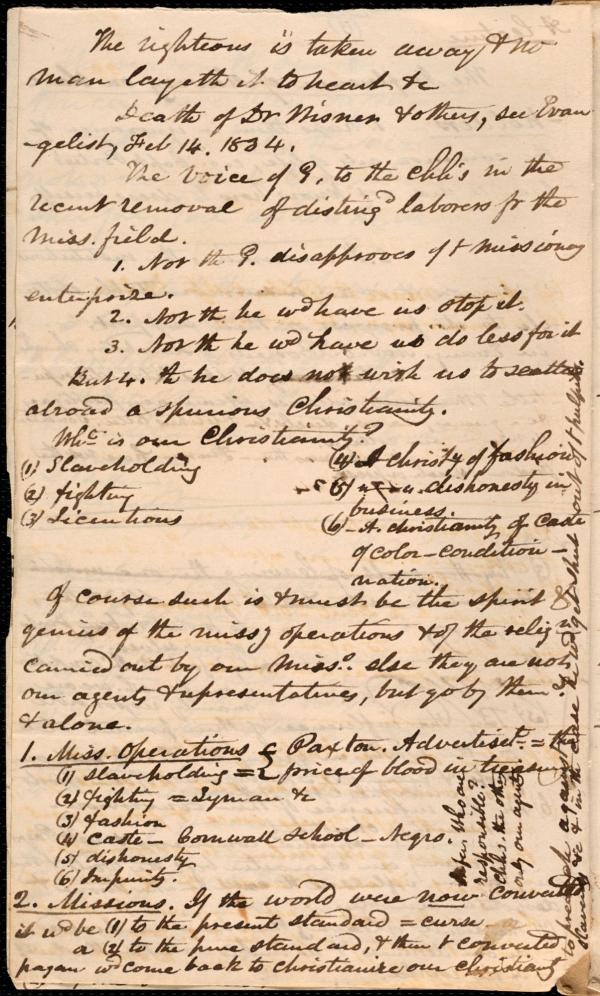 The righteous is taken away & no
man layeth it to heart &c
Death of Dr Wisner & others, see Evan
-gelist, Feb 14. 1834.
The voice of G. to the chh's in the
recent removal of disting^d laborers fr the
miss. field.
1. Not th G. disapproves of t missionary
enterprize.
2. Not th he wd have us stop it.
3. Not th he wd have us do less for it
But 4. th he does not wish us to scatter
abroad a spurious Christianity.
Whc is our Christianity?
(1) Slaveholding
(2) fighting
(3) Licentious
(4) A christy of fashion
(5) " " " dishonesty in
business.
(6) - A christianity of caste
of color - condition -
nation.
Of course such is & must be the spirit &
genius of the missy operations & of the relig n
carried out by our miss.s else they are not
our agents & representatives, but go by them
& alone.
1. Miss. Operations { Paxton. Advertiset. = the
(1) slaveholding = { price of blood in treasury
(2) fighting = Lyman &c
(3) fashion
(4) caste - Cornwall School - Negro.
(5) dishonesty
(6) Impurity.
2. Missions. If the world were now converted
it wd be (1) to the present standard = curse
or (2) to the pure standard, & then t converted
pagan wd come back to christianize our christianity
Who are
responsible?
chhs. the other
only our agents
to preach against
slavery &c & in the case he wd get shut out of t pulpit.